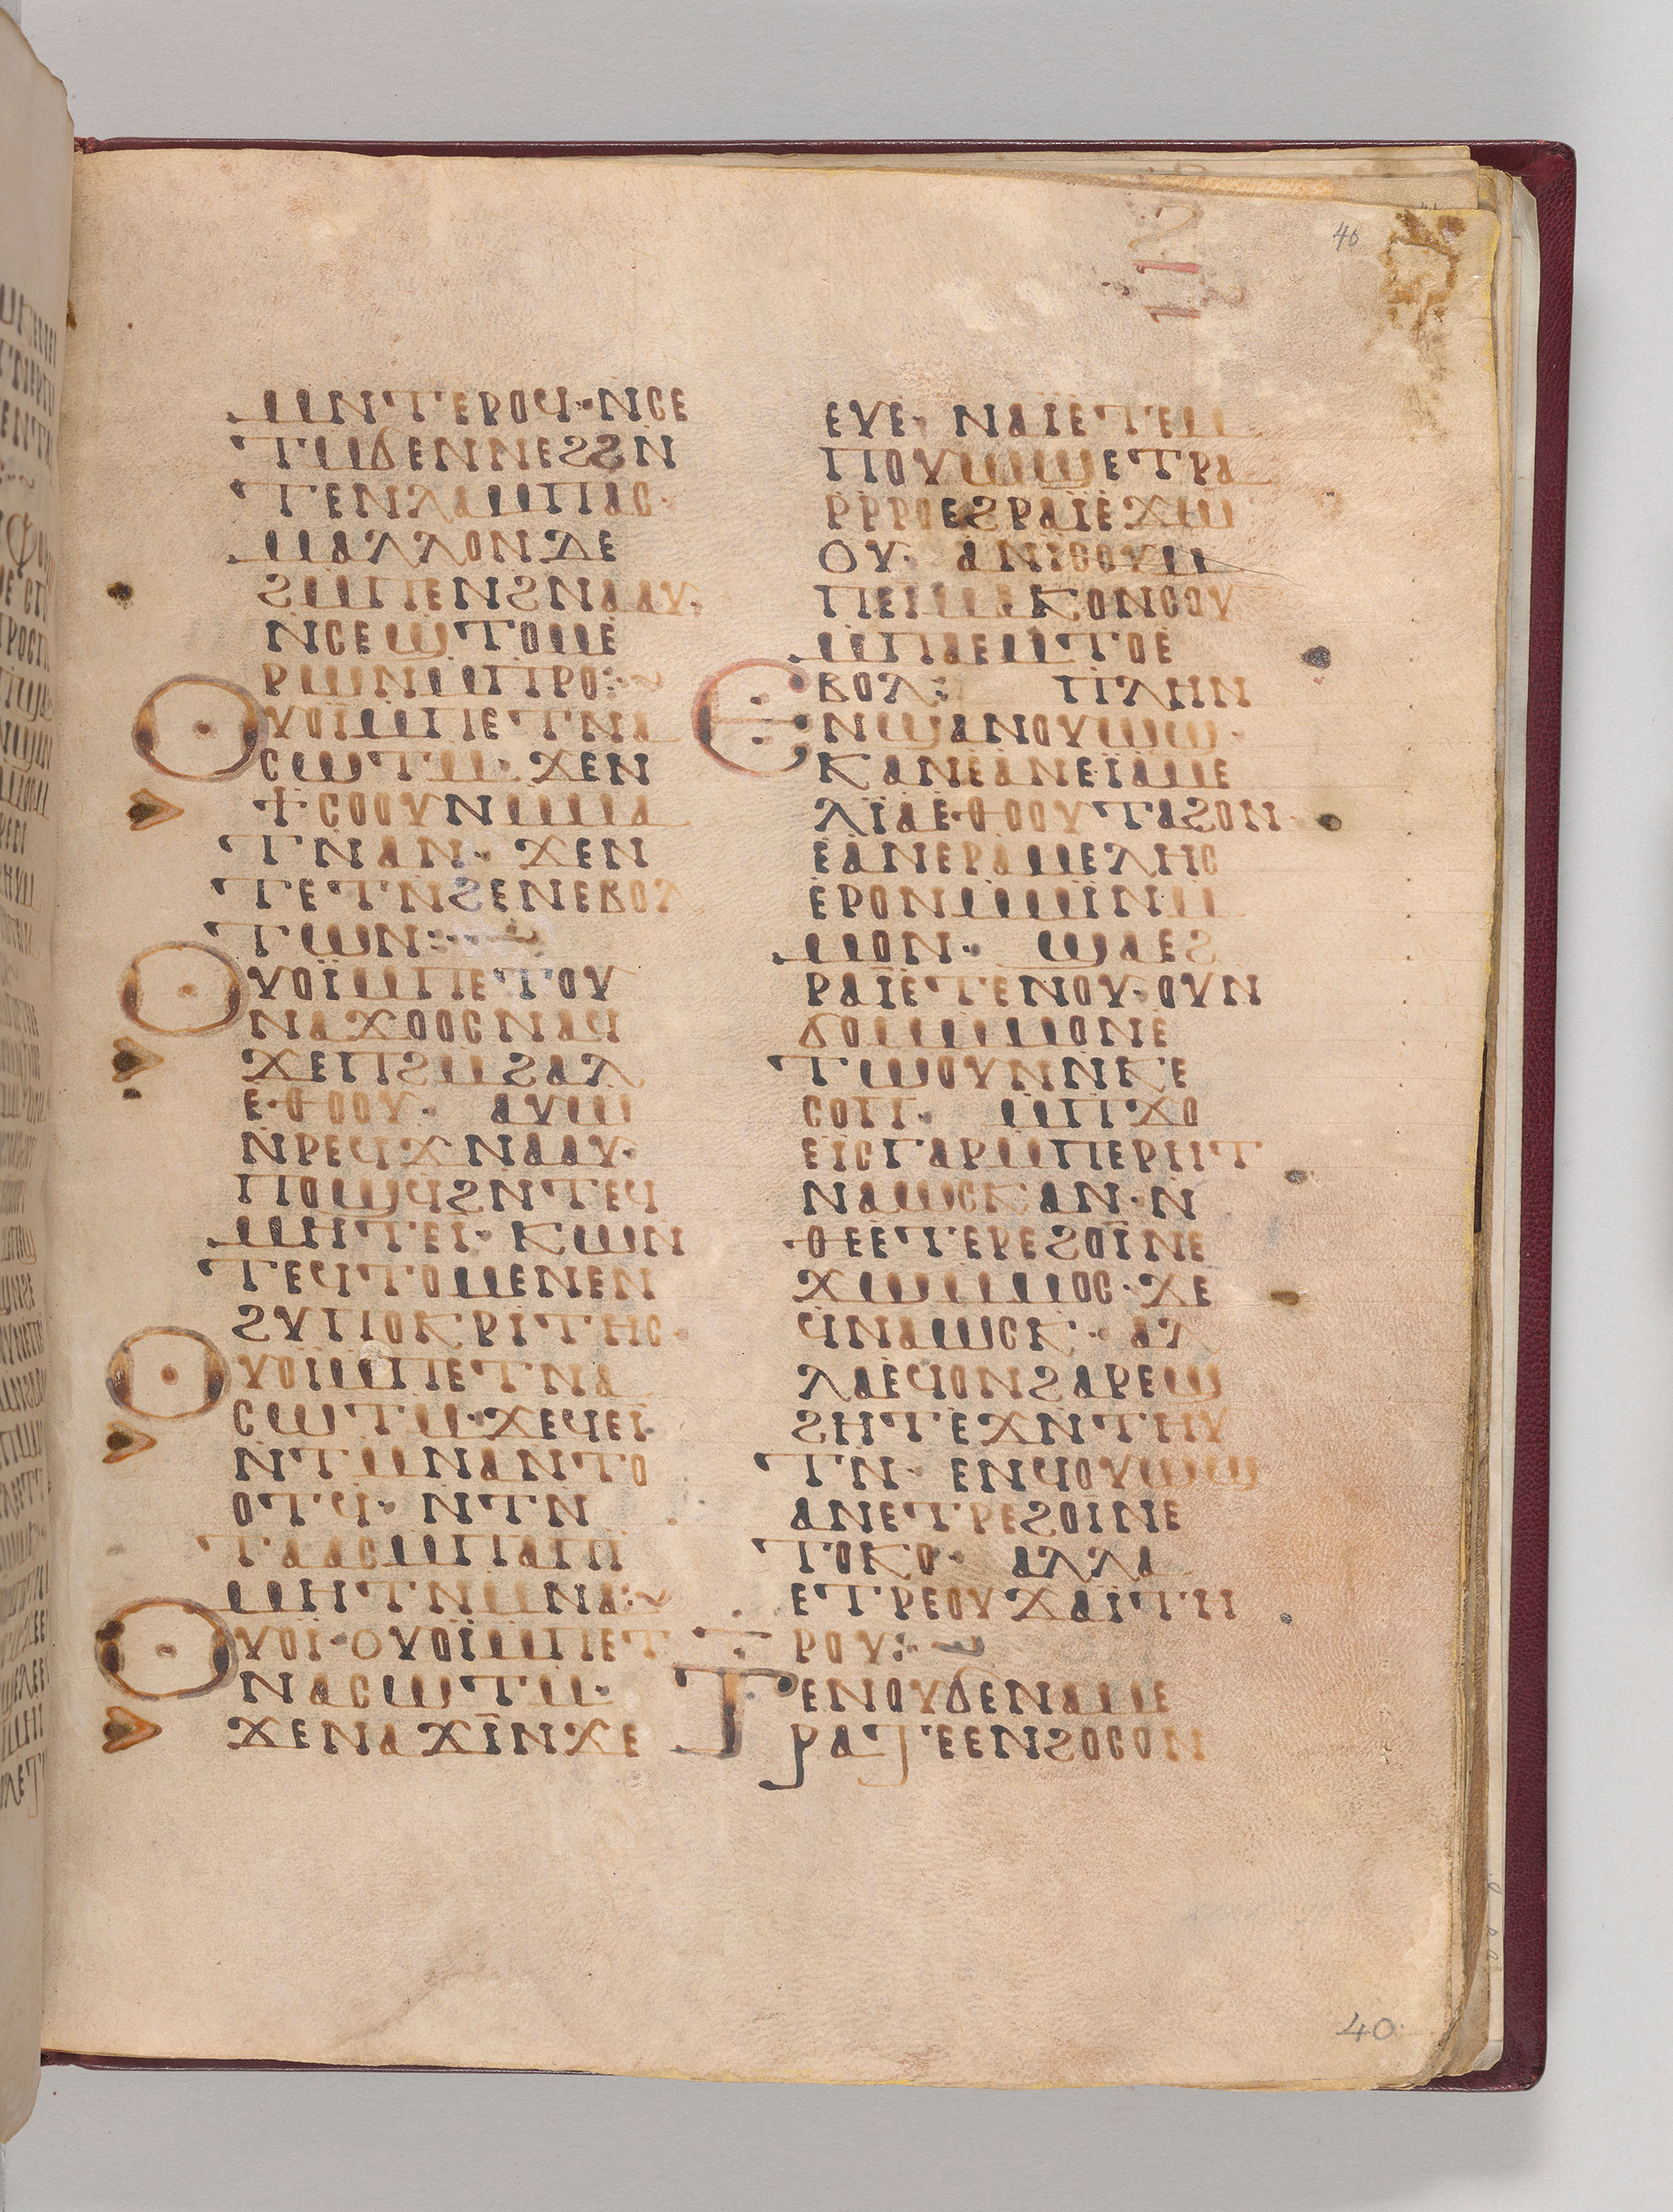 40
ⲙⲛⲧⲉⲣⲟϥ·ⲛⲥⲉ
ⲧⲙϭⲉⲛⲛⲉϩϩⲛ
ⲧⲉⲛⲗⲁⲙⲡⲁⲥ·
ⲙⲁⲗⲗⲟⲛⲇⲉ
ϩⲙⲡⲉⲛϩⲛⲁⲁⲩ·
ⲛⲥⲉϣⲧⲟⲙⲉ
ⲣⲱⲛⲙⲡⲣⲟ:~
ⲟⲩⲟⲓ̈ⲙⲡⲉⲧⲛⲁ
ⲥⲱⲧⲙ· ϫⲉⲛ
ϯⲥⲟⲟⲩⲛⲙⲙⲁ
ⲧⲛⲁⲛ· ϫⲉⲛ
ⲧⲉⲧⲛϩⲉⲛⲉⲃⲟⲗ
ⲧⲱⲛ:~
ⲟⲩⲟⲓ̈ⲙⲡⲉⲧⲟⲩ
ⲛⲁϫⲟⲟⲥⲛⲁϥ
ϫⲉⲡϩⲙϩⲁⲗ
ⲉⲑⲟⲟⲩ· ⲁⲩⲱ
ⲛⲣⲉϥϫⲛⲁⲁⲩ·
ⲡⲟϣϥϩⲛⲧⲉϥ
ⲙⲏⲧⲉⲓ· ⲕⲱⲛ
ⲧⲉϥⲧⲟⲙⲉⲛⲉⲛ
ϩⲩⲡⲟⲕⲣⲓⲧⲏⲥ·
ⲟⲩⲟⲓ̈ⲙⲡⲉⲧⲛⲁ
ⲥⲱⲧⲙ·ϫⲉϥⲉⲓ·
ⲛⲧⲙⲛⲁⲛⲧⲟ
ⲟⲧϥ· ⲛⲧⲛ
ⲧⲁⲁⲥⲙⲡⲁⲡ
ⲙⲏⲧⲛⲙⲛⲁ:~
ⲟⲩⲟⲓ·ⲟⲩⲟⲓ̈ⲙⲡⲉⲧ
ⲛⲁⲥⲱⲧⲙ·
ϫⲉⲛⲁϫⲓ̈ⲛϫⲉ
ⲉⲩⲉ· ⲛⲁⲓ̈ⲉⲧⲉⲙ
ⲡⲟⲩⲱϣⲉⲧⲣⲁ
ⲣⲣⲣⲟⲉϩⲣⲁⲓ̈ⲉϫⲱ
ⲟⲩ· ⲁⲛⲓⲥⲟⲩⲙ
ⲡⲉⲓⲙⲁⲕⲟⲛⲥⲟⲩ
ⲙⲡⲁⲉⲙⲧⲟⲉ
ⲃⲟⲗ: ⲡⲗⲏⲛ
ⲉⲛϣⲁⲛⲟⲩⲱϣ·
ⲕⲁⲛⲉⲁⲛⲉⲓ̈ⲁⲙⲉ
ⲗⲓ̈ⲁⲉⲑⲟⲟⲩⲧⲁϩⲟⲛ
ⲉⲁⲛⲉⲣⲁⲙⲉⲗⲏⲥ
ⲉⲣⲟⲛⲙⲙⲓ̈ⲛⲙ
ⲙⲟⲛ· ϣⲁⲉϩ
ⲣⲁⲓ̈ⲉⲧⲉⲛⲟⲩ·ⲟⲩⲛ
ϭⲟⲙⲙⲙⲟⲛⲉ
ⲧⲱⲟⲩⲛⲛⲕⲉ
ⲥⲟⲡ· ⲙⲡϫⲟ
ⲉⲓⲥⲅⲁⲣⲙⲡⲉⲣⲏⲧ
ⲛⲁⲱⲥⲕⲁⲛ·ⲛ
ⲑⲉⲉⲧⲉⲣⲉϩⲟⲓ̈ⲛⲉ
ϫⲱⲙⲙⲟⲥ·ϫⲉ
ϥⲛⲁⲱⲥⲕ· ⲁⲗ
ⲗⲁⲉϥⲟⲛϩⲁⲣⲉϣ
ϩⲏⲧⲉϫⲛⲧⲏⲩ
ⲧⲛ· ⲉⲛϥⲟⲩⲱϣ
ⲁⲛⲉⲧⲣⲉϩⲟⲓⲛⲉ
ⲧⲁⲕⲟ· ⲁⲗⲗⲁ
ⲉⲧⲣⲉⲟⲩϫⲁⲓ̈ⲧⲏ
ⲣⲟⲩ:~
ⲧⲉⲛⲟⲩϭⲉⲛⲁⲙⲉ
ⲣⲁⲧⲉⲉⲛϩⲟⲥⲟⲛ
40